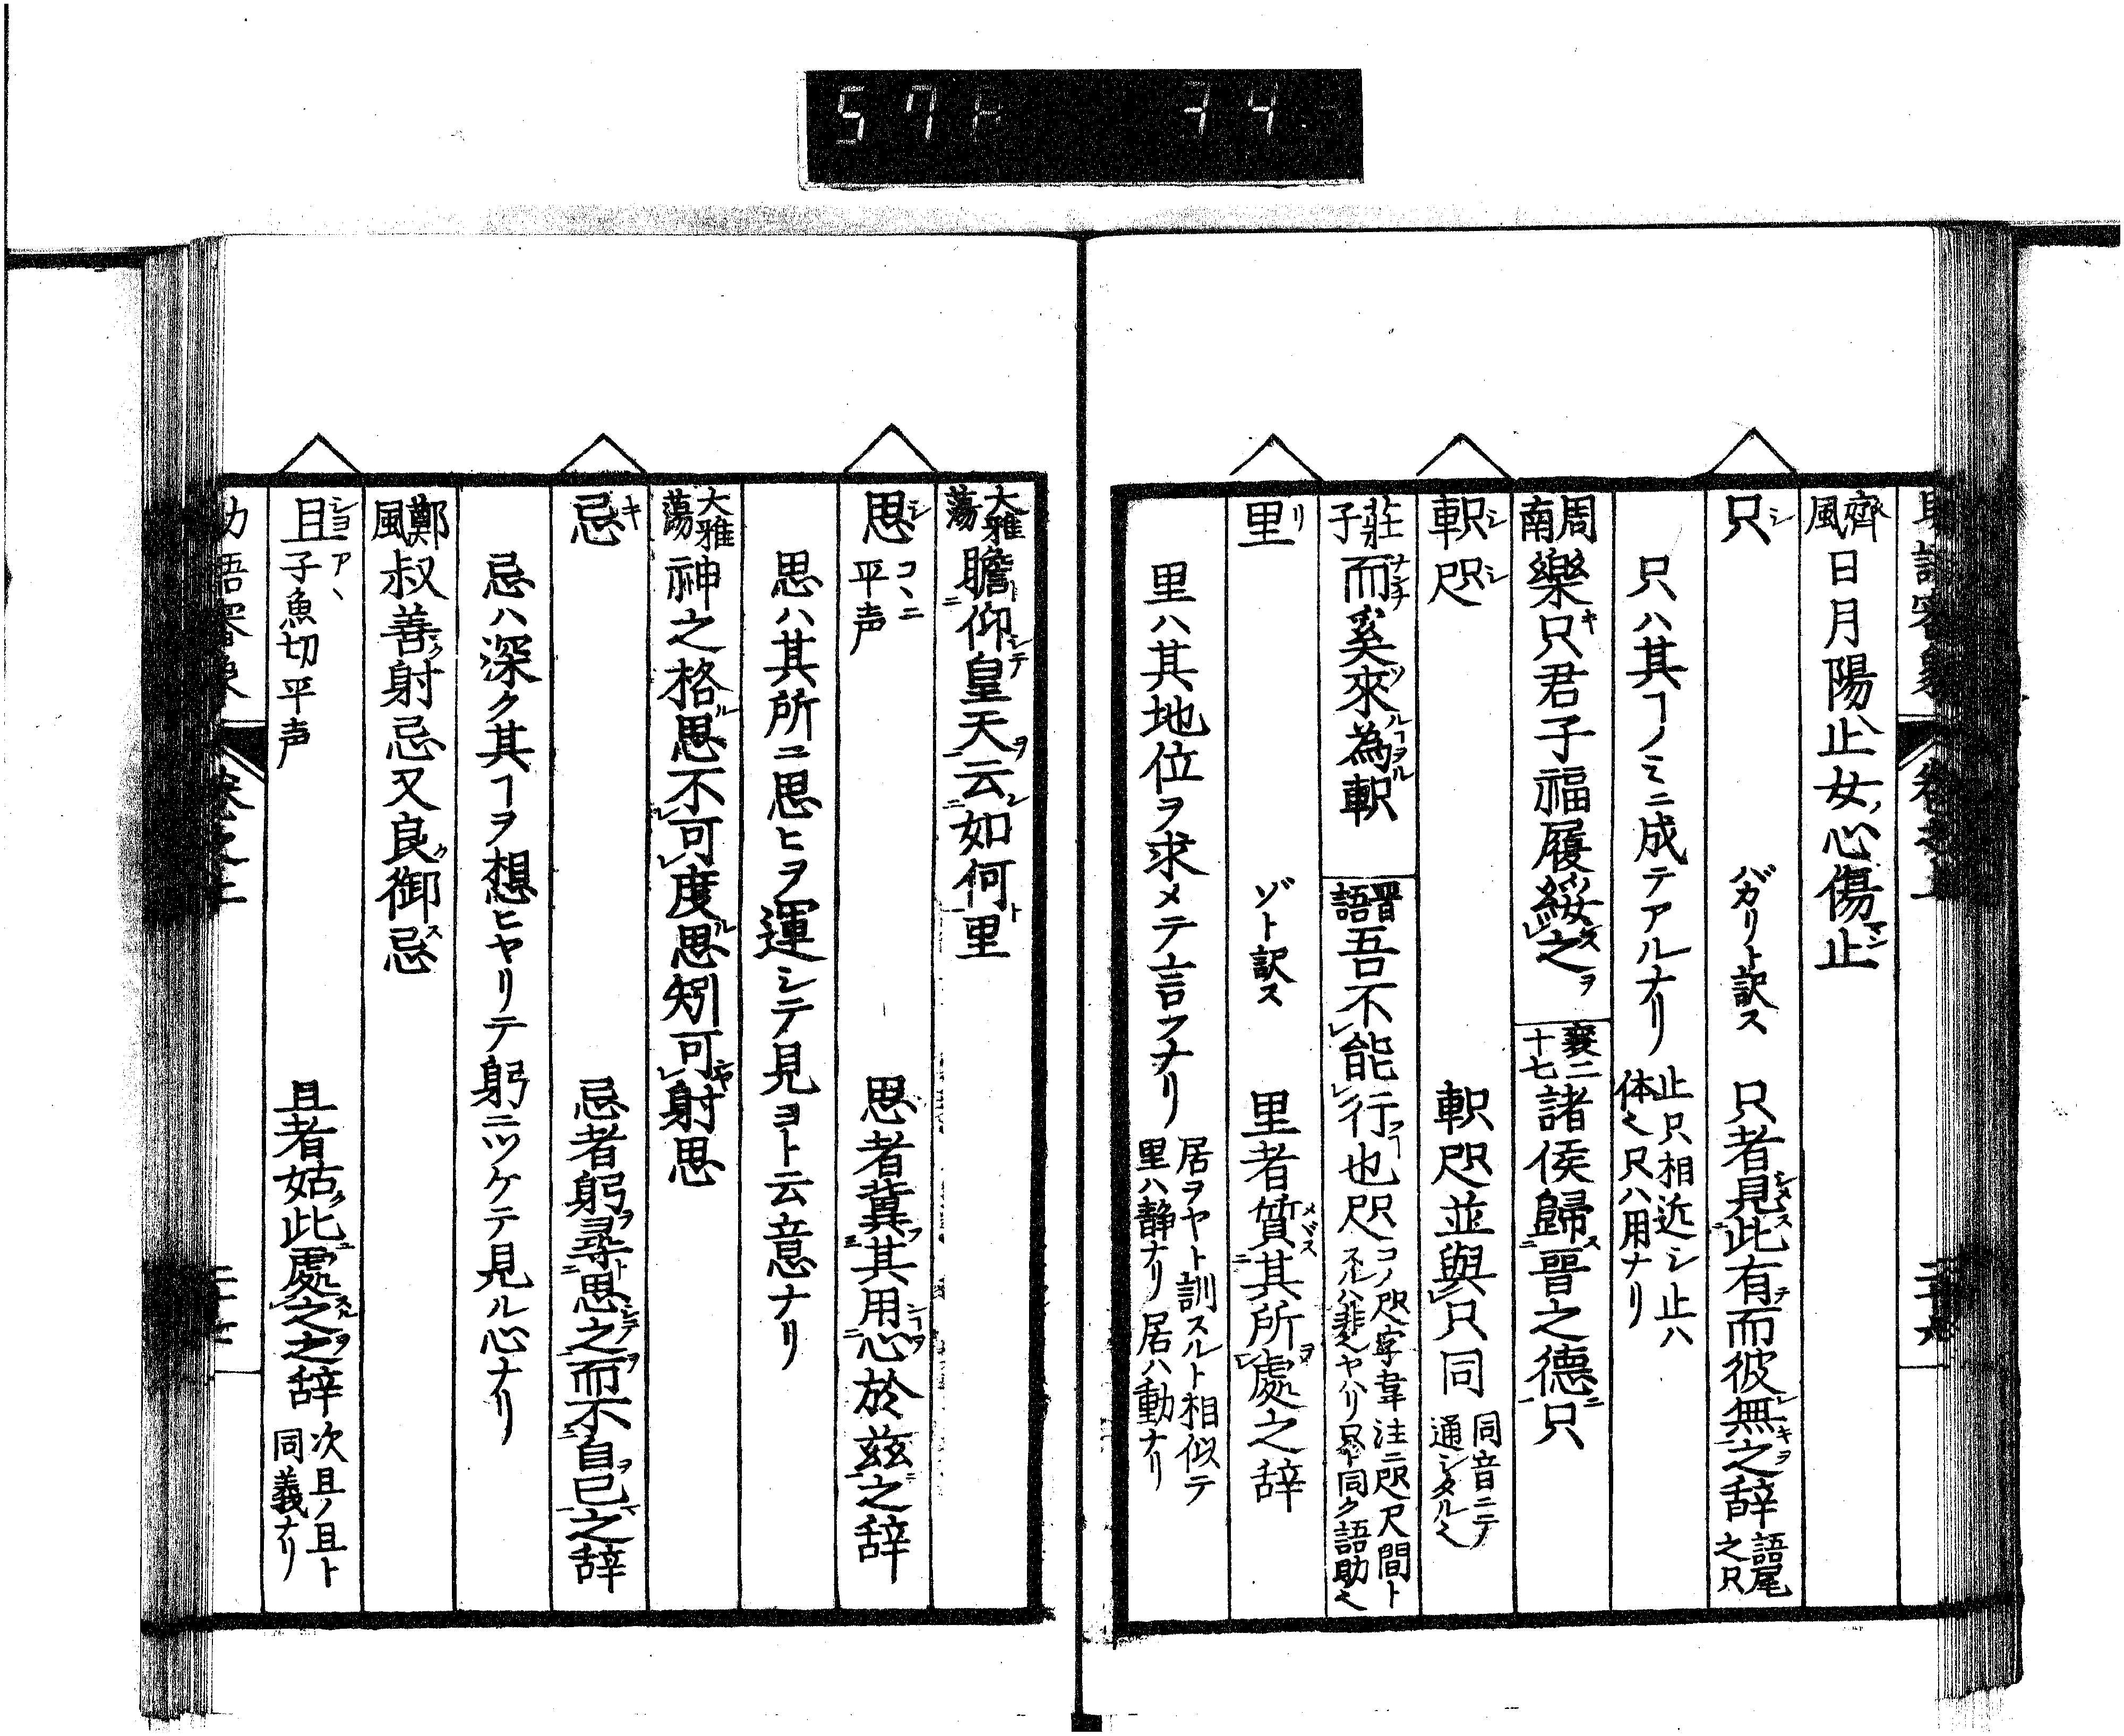 齊風 日月陽止女心傷止
只 シ バカリト訳ス 只者見此有而彼無之辞 語尾之只
只ハ其ヿノミニ成テアルナリ 止只相近シ止ハ体也只ハ用ナリ
周南 樂只君子福履綏之 襄二十七 諸侯歸晋之德只
軹 シ 咫 シ 軹咫並與只同 同音ニテ通シタル也
莊子 而奚來為軹 晋語 吾不能行也咫 コノ咫字韋注ニ咫尺間トスルハ非也ヤハリ只ト同ク語助也
里 リ ゾト訳ス 里者質其所處之辞
里ハ其地位ヲ求メテ言フナリ 居ヲヤト訓スルト相似テ里ハ静ナリ居ハ動ナリ
大雅蕩 瞻仰皇天云如何里
思 シ コヽニ平声 思者冀其用心於茲之辞
思ハ其所ニ思ヒヲ運シテ見ヨト云意ナリ
大雅蕩 神之格思不可度思矧可射思
忌 キ 忌者躬尋思之而不自已之辞
忌ハ深ク其ヿヲ想ヒヤリテ躬ニツケテ見ル心ナリ
鄭風 叔善射忌又良御忌
且 シヨ アヽ 子魚切平声 且者姑此處之之辞 次且ノ且ト同義ナリ